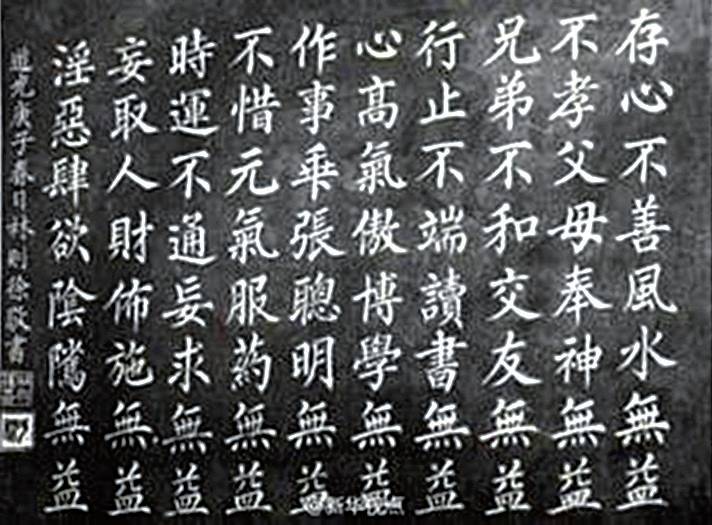 存心不善風水無益
不孝父母奉神無益
兄弟不和交友無益
行止不端讀書無益
心高氣傲博學無益
作事乖張聰明無益
不惜元氣服药無益
時運不通妄求無益
妄取人財佈施無益
淫惡肆欲陰騭無益
道光庚子春日林則徐敬書
@新华视点